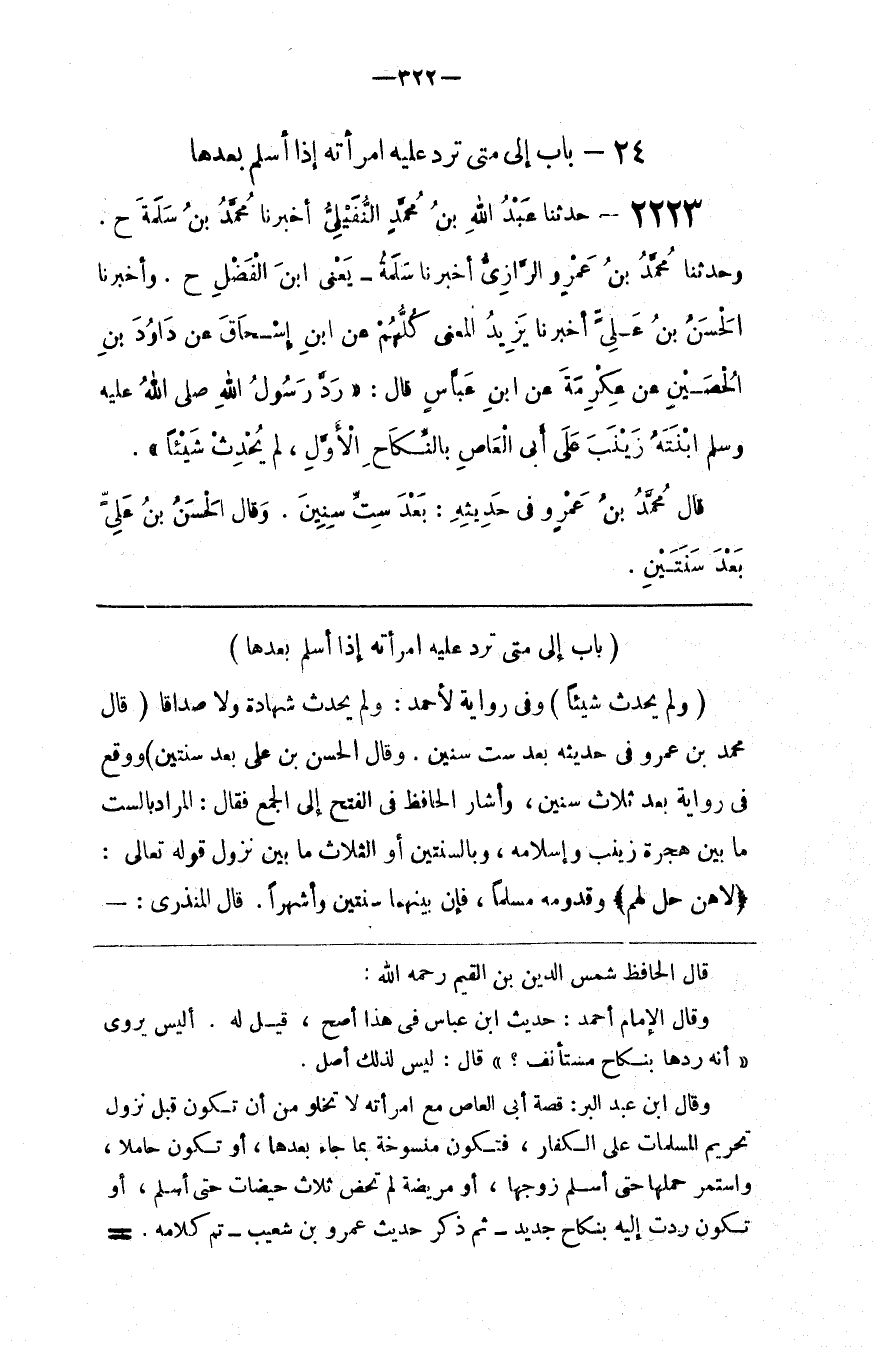 —٣٢٢—
٢٤ — باب إلى متى ترد عليه امرأته إذا أسلم بعدها
٢٢٢٣ — حدثنا عَبْدُ اللهِ بنُ مُحمَّدٍ النُّفَيْلِيُّ أخبرنا مُحمَّدُ بنُ سَلَمَةَ ح .
وحدثنا مُحمَّدُ بنُ عَمْرٍو الرَّازِىُّ أخبرنا سَلَمَةُ ـ يَعْنى ابنَ الْفَضْلِ ح . وأخبرنا
الْحَسَنُ بنُ عَـلِيٍّ أخبرنا يَزِيدُ المعنى كُلُّهُمْ عن ابنِ إسْـحَاقَ عن دَاوُدَ بنِ
الْحُصَـيْنِ عن عِكْرِمَةَ عن ابنِ عَبَّاسٍ قال : « رَدَّ رَسُولُ اللهِ صلى اللهُ عليه
وسلم ابْنَتَهُ زَيْنَبَ عَلَى أبى الْعَاصِ بالنِّـكَاحِ الْأَوَّلِ ، لم يُحْدِثْ شَيْئاً » .
قال مُحمَّدُ بنُ عَمْرٍو فى حَدِيثِهِ : بَعْدَ سِتِّ سِنِينَ . وَقال الْحَسَنُ بنُ عَلِيٍّ
بَعْدَ سَنَتَـيْنِ .
( باب إلى متى ترد عليه امرأته إذا أسلم بعدها )
( ولم يحدث شيئاً ) وفى رواية لأحمد : ولم يحدث شهادة ولا صداقا ( قال
محمد بن عمرو فى حديثه بعد ست سنين . وقال الحسن بن على بعد سنتين)ووقع
فى رواية بعد ثلاث سنين ، وأشار الحافظ فى الفتح إلى الجمع فقال : المراد بالست
ما بين هجرة زينب وإسلامه ، وبالسنتين أو الثلاث ما بين نزول قوله تعالى :
﴿لاهن حل لهم﴾ وقدومه مسلماً ، فإن بينهما سنتين وأشهراً . قال المنذرى : —
قال الحافظ شمس الدين بن القيم رحمه الله :
وقال الإمام أحمد : حديث ابن عباس فى هذا أصح ، قيـل له . أليس يروى
« أنه ردها بنـكاح مستأنف ؟ » قال : ليس لذلك أصل .
وقال ابن عبد البر: قصة أبى العاص مع امرأته لا تخلو من أن تـكون قبل نزول
تحريم المسلمات على الـكفار ، فتـكون منسوخة بما جاء بعدها ، أو تـكون حاملا ،
واستمر حملها حتى أسـلم زوجها ، أو مريضة لم تحض ثلاث حيضات حتى أسلم ، أو
تـكون ردت إليه بنكاح جديد ـ ثم ذكر حديث عمرو بن شعيب ـ تم كلامه . =